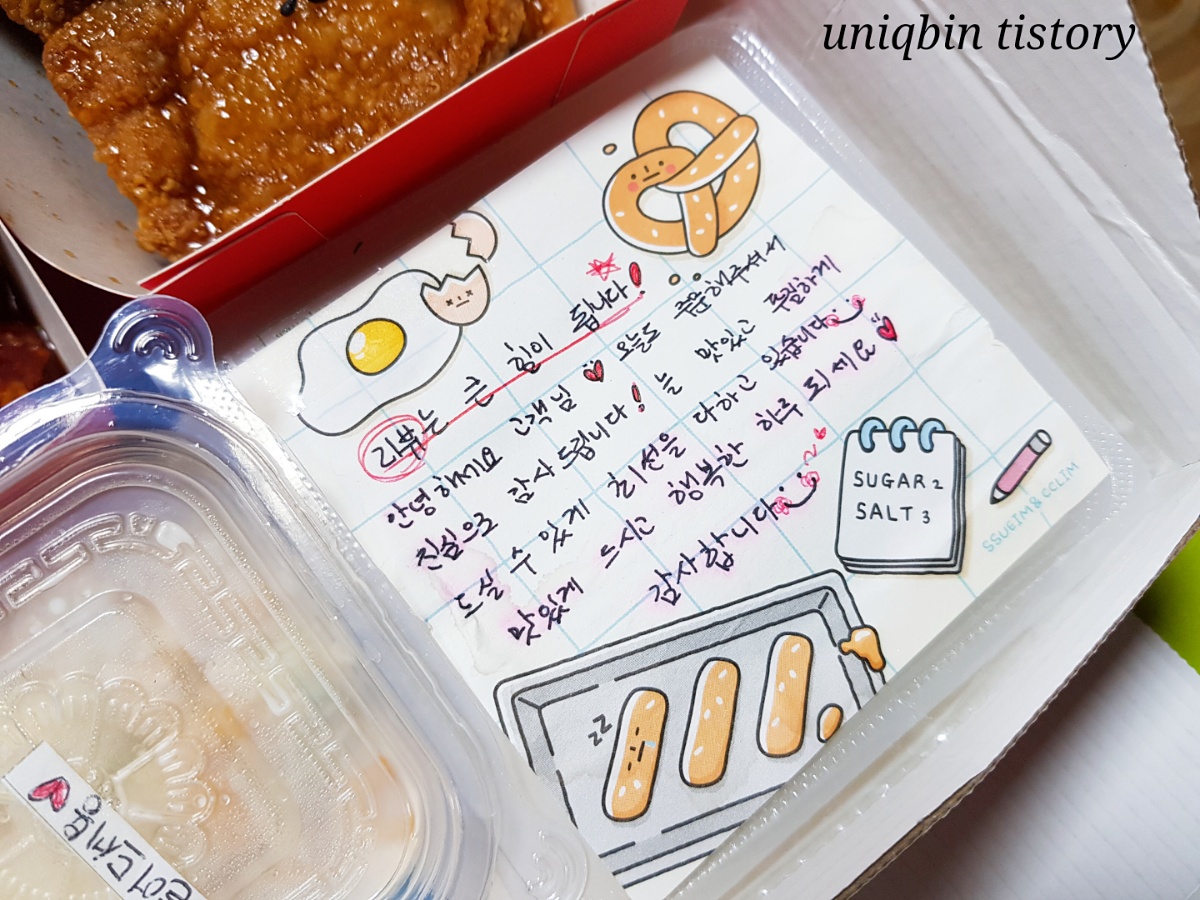 uniqbin tistory
리뷰는 큰 힘이 됩니다!
안녕하세요 고객님 오늘도 주문해주셔서
진심으로 감사드립니다! 늘 맛있고 푸짐하게
드실 수 있게 최선을 다하고 있습니다
맛있게 드시고 행복한 하루 되세요
감사합니다~
SUGAR 2
SALT 3
SSUEIM & CCLIM
zz